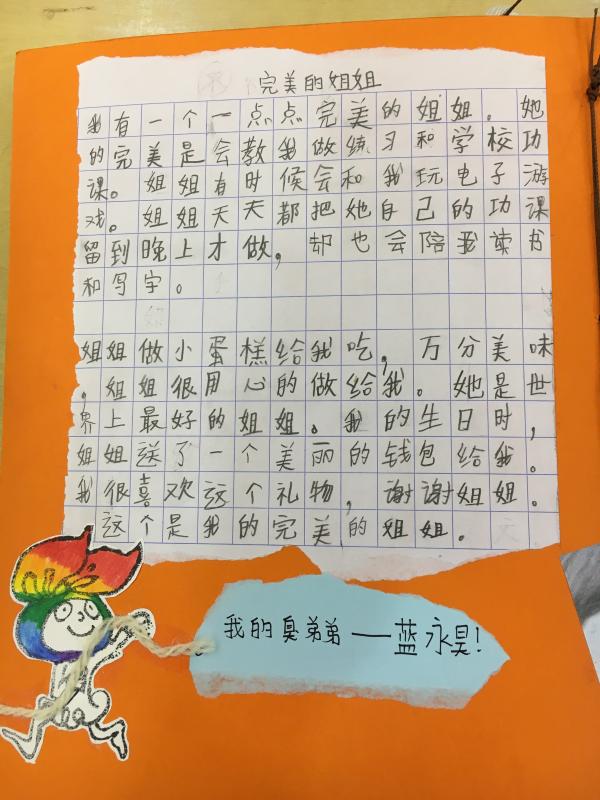 完美的姐姐
我有一个一点点完美的姐姐。她
的完美是会教我做练习和学校功
课。姐姐有时候会和我玩电子游
戏。姐姐天天都把她自己的功课
留到晚上才做，却也会陪我读书
和写字。
姐姐做小蛋糕给我吃，万分美味
。姐姐很用心的做给我。她是世
界上最好的姐姐。我的生日时，
姐姐送了一个美丽的钱包给我。
我很喜欢这个礼物，谢谢姐姐。
这个是我的完美的姐姐。
我的臭弟弟——蓝永昊！